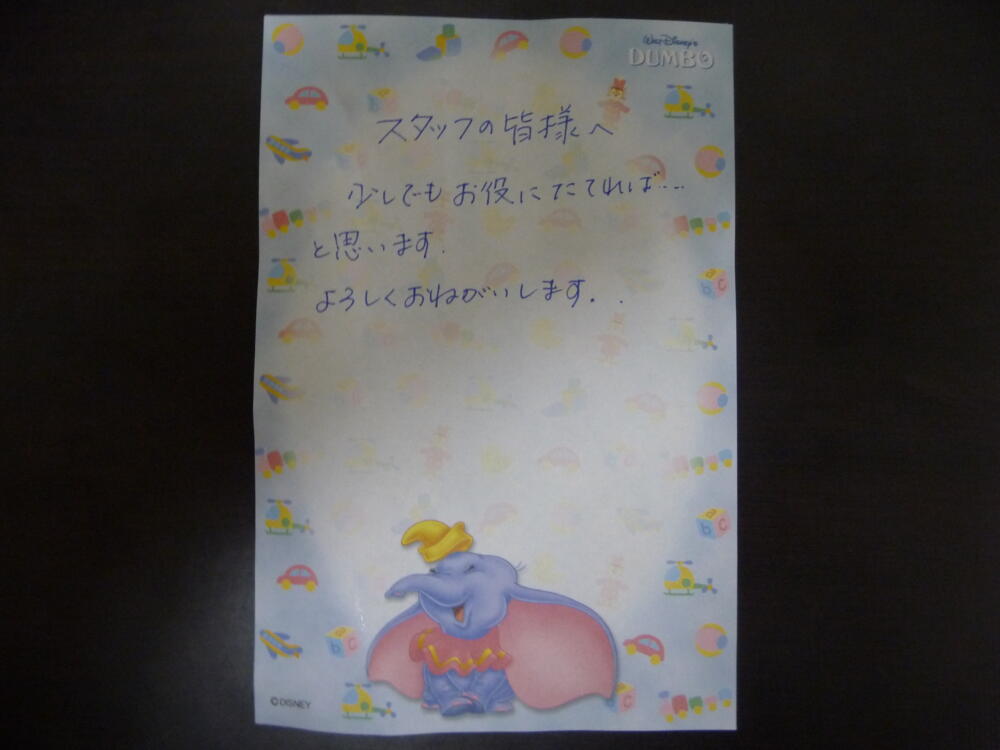 Walt Disney's
DUMBO
スタッフの皆様へ
少しでもお役にたてれば....
と思います.
よろしくおねがいします. .
©DISNEY